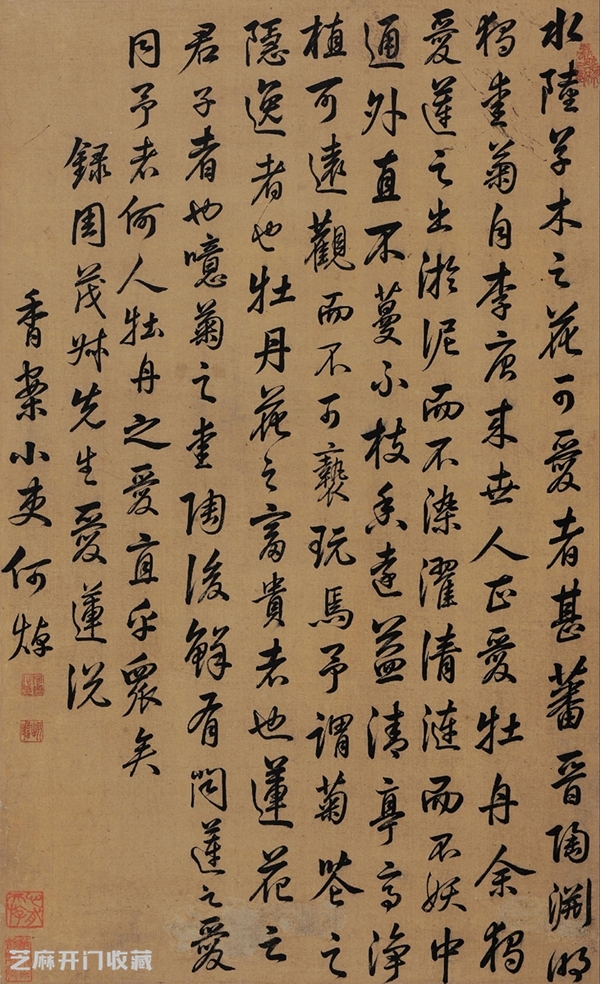 水陸草木之花可愛者甚蕃晉陶淵明
獨愛菊自李唐来世人正愛牡丹余獨
愛蓮之出淤泥而不染濯清漣而不妖中
通外直不蔓不枝香遠益清亭亭淨
植可遠觀而不可褻玩焉予謂菊花之
隱逸者也牡丹花之富貴者也蓮花之
君子者也噫菊之愛陶後鮮有聞蓮之愛
同予者何人牡丹之愛宜乎眾矣
錄周茂叔先生愛蓮說
香案小吏何焯
芝麻开门收藏